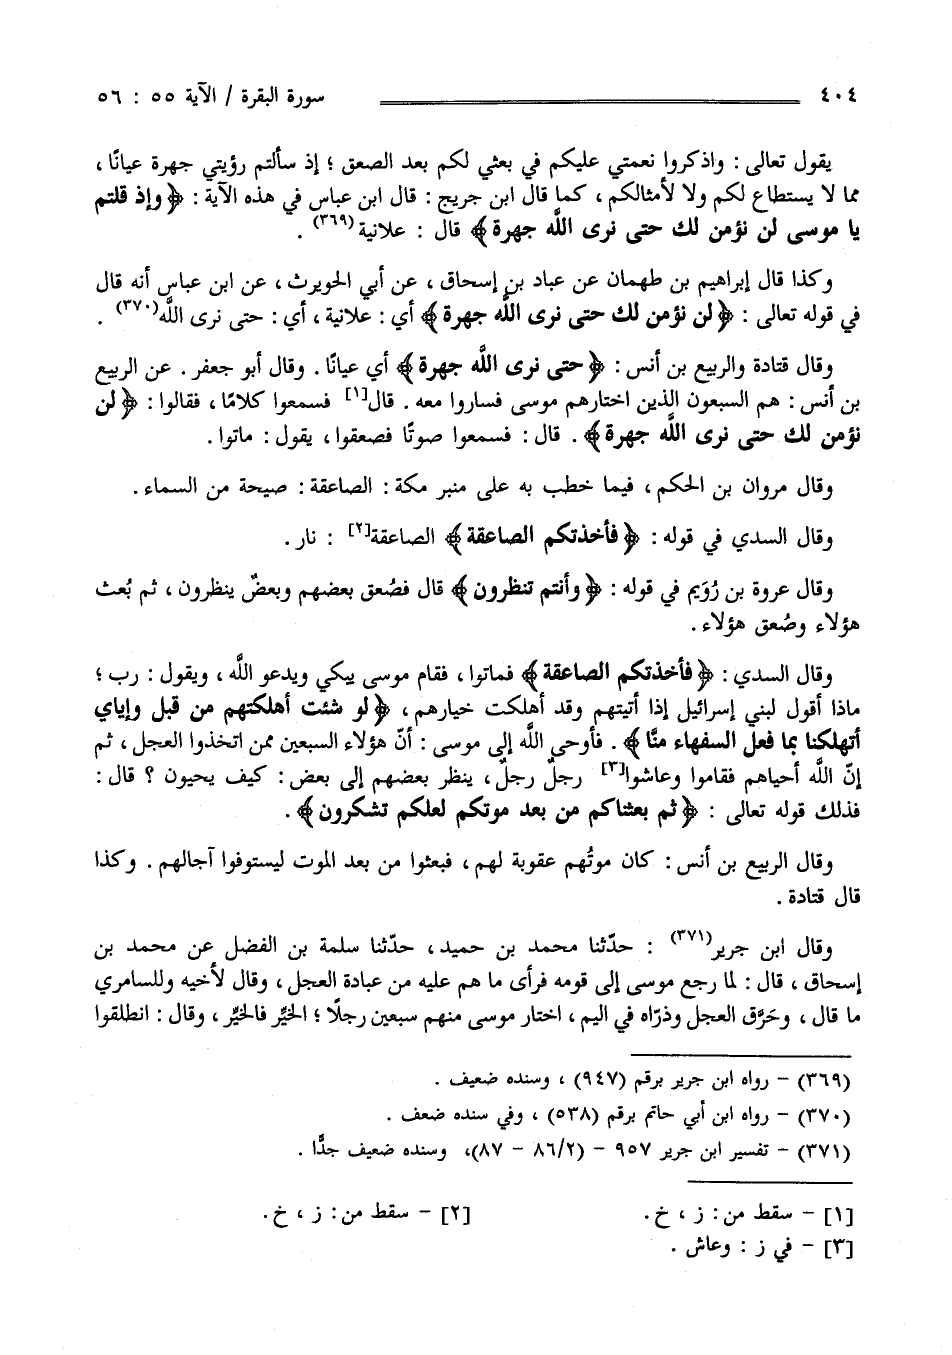 ٤٠٤ سورة البقرة / الآية ٥٥ : ٥٦
يقول تعالى : واذكروا نعمتي عليكم في بعثي لكم بعد الصعق ؛ إذ سألتم رؤيتي جهرة عيانًا ،
مما لا يستطاع لكم ولا لأمثالكم ، كما قال ابن جريج : قال ابن عباس في هذه الآية : ﴿ وإذ قلتم
يا موسى لن نؤمن لك حتى نرى اللَّه جهرة ﴾ قال : علانية (٣٦٩) .
وكذا قال إبراهيم بن طهمان عن عباد بن إسحاق ، عن أبي الحويرث ، عن ابن عباس أنه قال
في قوله تعالى : ﴿ لن نؤمن لك حتى نرى اللَّه جهرة ﴾ أي : علانية ، أي : حتى نرى اللَّه(٣٧٠) .
وقال قتادة والربيع بن أنس : ﴿ حتى نرى اللَّه جهرة ﴾ أي عيانًا . وقال أبو جعفر . عن الربيع
بن أنس : هم السبعون الذين اختارهم موسى فساروا معه . قال[١] فسمعوا كلامًا ، فقالوا : ﴿ لن
نؤمن لك حتى نرى اللَّه جهرة ﴾ . قال : فسمعوا صوتًا فصعقوا ، يقول : ماتوا .
وقال مروان بن الحكم ، فيما خطب به على منبر مكة : الصاعقة : صيحة من السماء .
وقال السدي في قوله : ﴿ فأخذتكم الصاعقة ﴾ الصاعقة[٢] : نار .
وقال عروة بن رُوَيم في قوله : ﴿ وأنتم تنظرون ﴾ قال فصُعق بعضهم وبعضٌ ينظرون ، ثم بُعث
هؤلاء وصُعق هؤلاء .
وقال السدي : ﴿ فأخذتكم الصاعقة ﴾ فماتوا ، فقام موسى يبكي ويدعو اللَّه ، ويقول : رب ؛
ماذا أقول لبني إسرائيل إذا أتيتهم وقد أهلكت خيارهم ، ﴿ لو شئت أهلكتهم من قبل وإياي
أتهلكنا بما فعل السفهاء منَّا ﴾ . فأوحى اللَّه إلى موسى : أنّ هؤلاء السبعين ممن اتخذوا العجل ، ثم
إنّ اللَّه أحياهم فقاموا وعاشوا[٣] رجلٌ رجلٌ ، ينظر بعضهم إلى بعض : كيف يحيون ؟ قال :
فذلك قوله تعالى : ﴿ ثم بعثناكم من بعد موتكم لعلكم تشكرون ﴾ .
وقال الربيع بن أنس : كان موتُهم عقوبة لهم ، فبعثوا من بعد الموت ليستوفوا آجالهم . وكذا
قال قتادة .
وقال ابن جرير(٣٧١) : حدّثنا محمد بن حميد ، حدّثنا سلمة بن الفضل عن محمد بن
إسحاق ، قال : لما رجع موسى إلى قومه فرأى ما هم عليه من عبادة العجل ، وقال لأخيه وللسامري
ما قال ، وحَرَّق العجل وذرّاه في اليم ، اختار موسى منهم سبعين رجلًا ؛ الخيِّر فالخيِّر ، وقال : انطلقوا
(٣٦٩) - رواه ابن جرير برقم (٩٤٧) ، وسنده ضعيف .
(٣٧٠) - رواه ابن أبي حاتم برقم (٥٣٨) ، وفي سنده ضعف .
(٣٧١) - تفسير ابن جرير ٩٥٧ - (٨٦/٢ - ٨٧)، وسنده ضعيف جدًّا .
[١] - سقط من : ز ، خ . [٢] - سقط من : ز ، خ .
[٣] - في ز : وعاش .